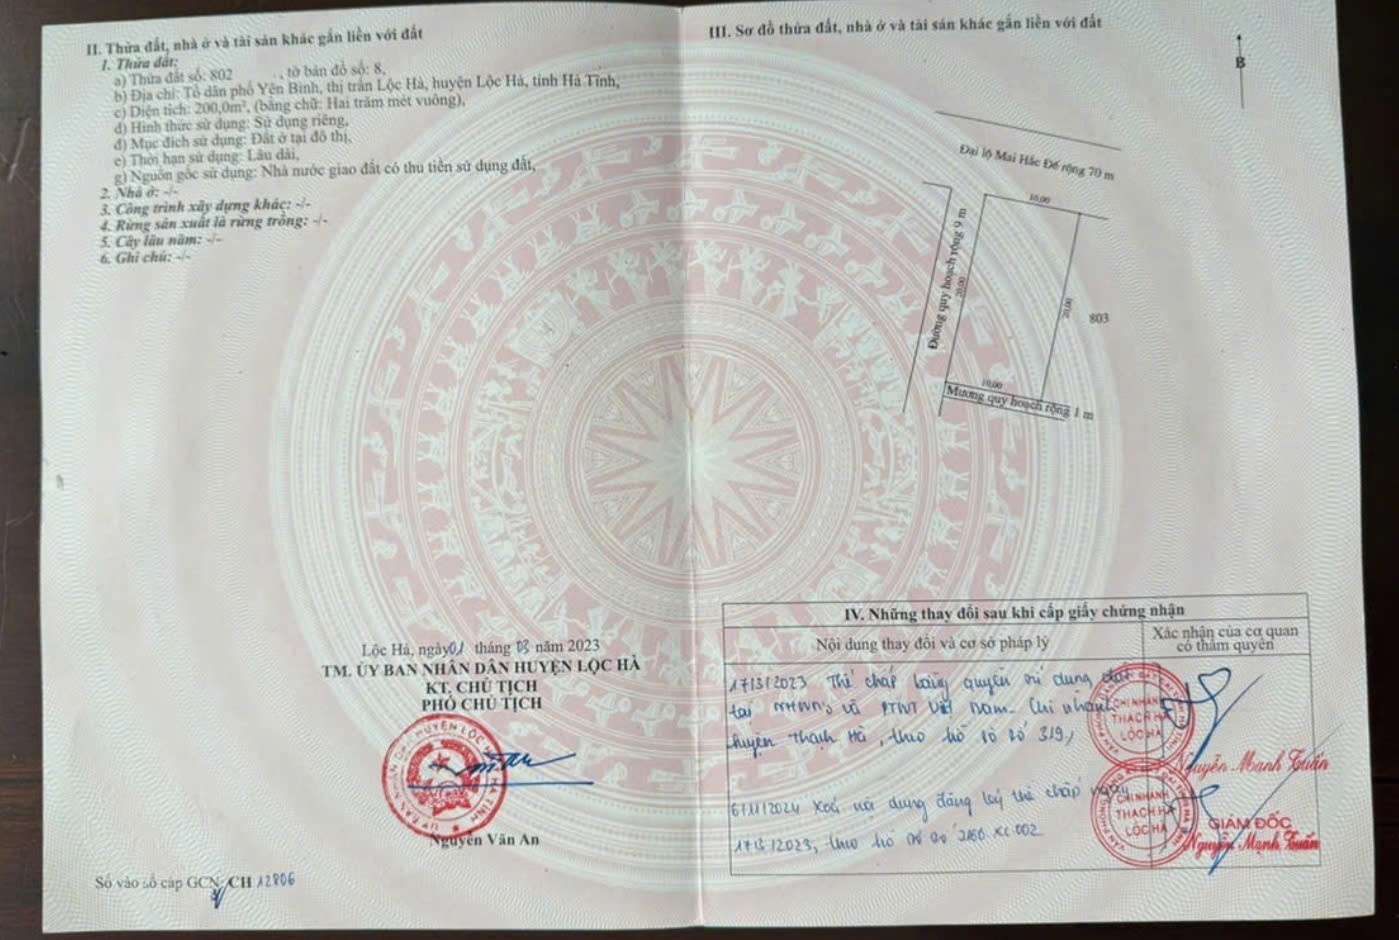 II. Thửa đất, nhà ở và tài sản khác gắn liền với đất
1. Thửa đất:
a) Thửa đất số: 802 , tờ bản đồ số: 8,
b) Địa chỉ: Tổ dân phố Yên Bình, thị trấn Lộc Hà, huyện Lộc Hà, tỉnh Hà Tĩnh,
c) Diện tích: 200,0m², (bằng chữ: Hai trăm mét vuông),
d) Hình thức sử dụng: Sử dụng riêng,
đ) Mục đích sử dụng: Đất ở tại đô thị,
e) Thời hạn sử dụng: Lâu dài,
g) Nguồn gốc sử dụng: Nhà nước giao đất có thu tiền sử dụng đất,
2. Nhà ở: -/-
3. Công trình xây dựng khác: -/-
4. Rừng sản xuất là rừng trồng: -/-
5. Cây lâu năm: -/-
6. Ghi chú: -/-
Lộc Hà, ngày 01 tháng 03 năm 2023
TM. ỦY BAN NHÂN DÂN HUYỆN LỘC HÀ
KT. CHỦ TỊCH
PHÓ CHỦ TỊCH
Nguyễn Văn An
Số vào sổ cấp GCN: CH 12806
III. Sơ đồ thửa đất, nhà ở và tài sản khác gắn liền với đất
B
Đại lộ Mai Hắc Đế rộng 70 m
10,00
Đường quy hoạch rộng 9 m
20,00
20,00
803
10,00
Mương quy hoạch rộng 1 m
IV. Những thay đổi sau khi cấp giấy chứng nhận
Nội dung thay đổi và cơ sở pháp lý
Xác nhận của cơ quan
có thẩm quyền
17/3/2023 Thế chấp bằng quyền sử dụng đất
tại NHNNo và PTNT Việt Nam - Chi nhánh
huyện Thạch Hà, theo hồ sơ số 319,
CHI NHÁNH
THẠCH HÀ
LỘC HÀ
Nguyễn Mạnh Tuấn
6/11/2024 Xoá nội dung đăng ký thế chấp ngày
17/3/2023, theo hồ sơ số 2160.XC.002
CHI NHÁNH
THẠCH HÀ
LỘC HÀ
GIÁM ĐỐC
Nguyễn Mạnh Tuấn